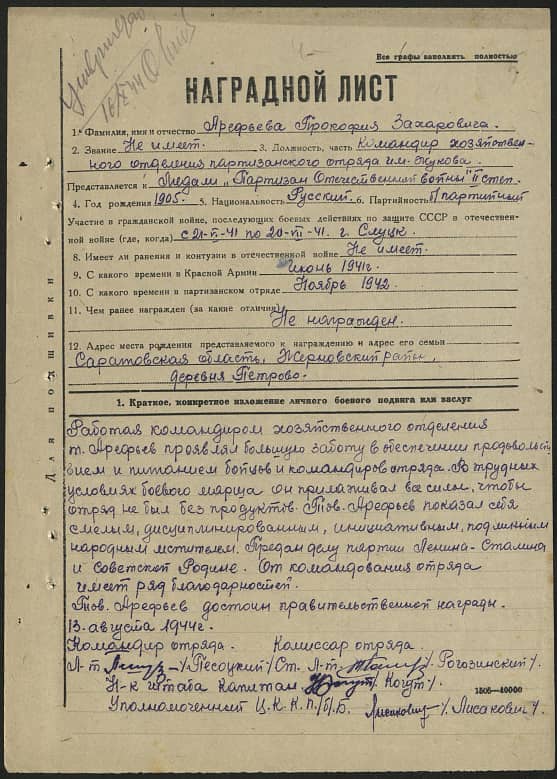 Утверждаю
16/X 44
Все графы заполнять полностью
НАГРАДНОЙ ЛИСТ
1. Фамилия, имя и отчество Арефьева Прокофия Захаровича.
2. Звание Не имеет. 3. Должность, часть Командир хозяйствен-
ного отделения партизанского отряда им. Жукова.
Представляется к Медали „Партизан Отечественной войны" II степ.
4. Год рождения 1905. 5. Национальность Русский 6. Партийность Б/партийный
Участие в гражданской войне, последующих боевых действиях по защите СССР в отечествен-
ной войне (где, когда) с 21-VI-41 по 20-VII-41. г. Слуцк.
8. Имеет ли ранения и контузии в отечественной войне Не имеет.
9. С какого времени в Красной Армии июнь 1941г.
10. С какого времени в партизанском отряде Ноябрь 1942.
11. Чем ранее награжден (за какие отличия)
Не награжден.
12. Адрес места рождения представляемого к награждению и адрес его семьи
Саратовская область, Жерновский район,
деревня Петрово.
Для подшивки
1. Краткое, конкретное изложение личного боевого подвига или заслуг
Работая командиром хозяйственного отделения
т. Арефьев проявлял большую заботу в обеспечении продовольст
вием и питанием бойцов и командиров отряда. В трудных
условиях боевого марша он прилаживал все силы, чтобы
отряд не был без продуктов. Тов. Арефьев показал себя
смелым, дисциплинированным, инициативным, подлинным
народным мстителем. Предан делу партии Ленина-Сталина
и советской Родине. От командования отряда
имеет ряд благодарностей.
Тов. Арефьев достоин правительственной награды.
13. августа 1944г.
Командир отряда. Комиссар отряда.
Л-т /Песоцкий/ Ст. Л-т /Рогозинский/.
Н-к штаба капитан /Когут/.
1505-40000
Уполномоченный Ц.К.К.П./б/.Б. Лисакович /Лисакович/.